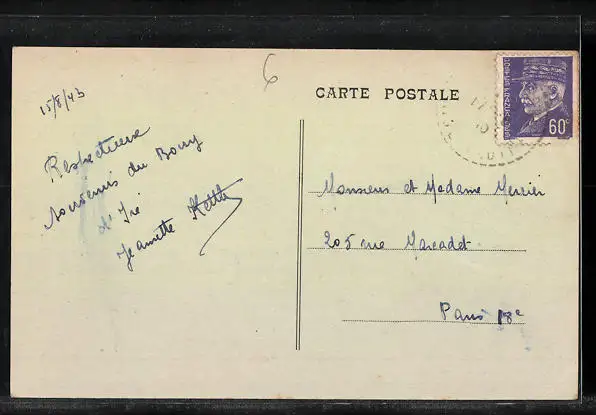 6
CARTE POSTALE
60c
15/8/43
Respectueux
souvenirs du Bourg
d'Iré
Jeannette
Monsieur et Madame Mercier
205 rue Marcadet
Paris 18e